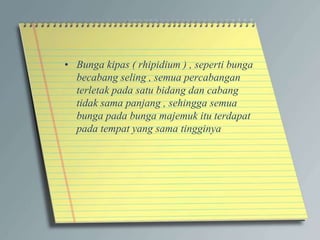 • Bunga kipas ( rhipidium ) , seperti bunga
becabang seling , semua percabangan
terletak pada satu bidang dan cabang
tidak sama panjang , sehingga semua
bunga pada bunga majemuk itu terdapat
pada tempat yang sama tingginya